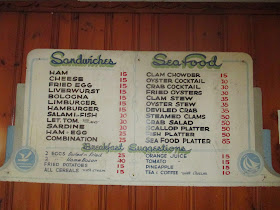 Sandwiches
HAM 15
CHEESE 15
FRIED EGG 15
LIVERWURST 15
BOLOGNA 15
LIMBURGER 15
HAMBURGER 15
SALAMI - FISH
LET. TOM.
SARDINE
HAM - EGG
COMBINATION
Sea Food
CLAM CHOWDER 15
OYSTER COCKTAIL
CRAB COCKTAIL
FRIED OYSTERS
CLAM STEW
OYSTER STEW
DEVILED CRAB
STEAMED CLAMS
CRAB SALAD
SCALLOP PLATTER
FISH PLATTER
SEA FOOD PLATTER
Breakfast Suggestions
2 EGGS 25
2
FRIED POTATOES 15
ALL CEREALS 15
ORANGE JUICE
TOMATO
PINEAPPLE
TEA - COFFEE